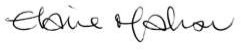 Elaine Mahon